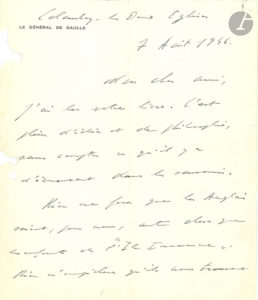 LE GÉNÉRAL DE GAULLE
Colombey-les-Deux-Églises
7 Août 1946.
Mon cher ami,
J'ai lu votre livre. C'est
plein d'idées et de philosophie,
sans compter ce qu'il y a
d'émouvant dans les souvenirs.
Rien ne fera que les Anglais
soient, pour nous, autre chose que
les enfants de "l'Ile
Rien n'empêchera qu'ils nous trouvent